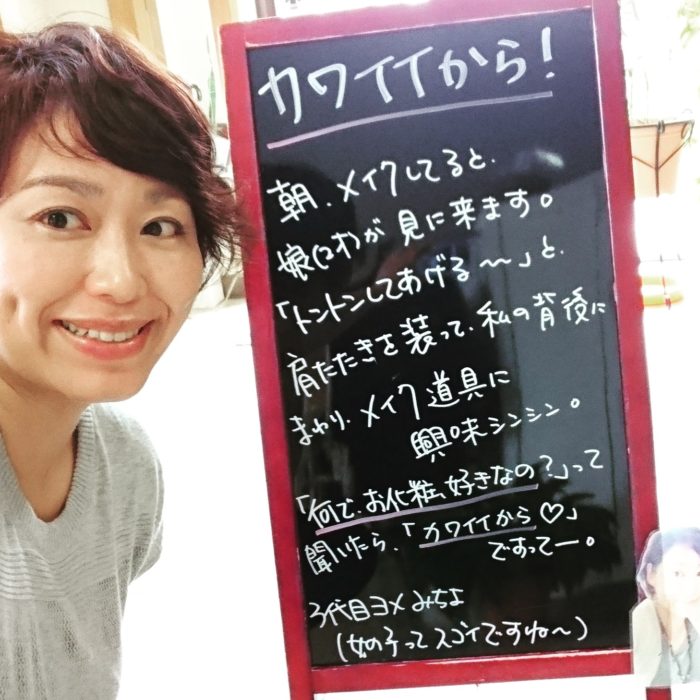 カワイイから！
朝、メイクしてると、
娘(2才)が見に来ます。
「トントンしてあげる〜」と、
肩たたきを装って、私の背後に
まわり、メイク道具に
興味シンシン。
「何で、お化粧、好きなの？」って
聞いたら、「カワイイから♡」
ですってー。
3代目ヨメ みちよ
(女の子ってスゴイですね〜)